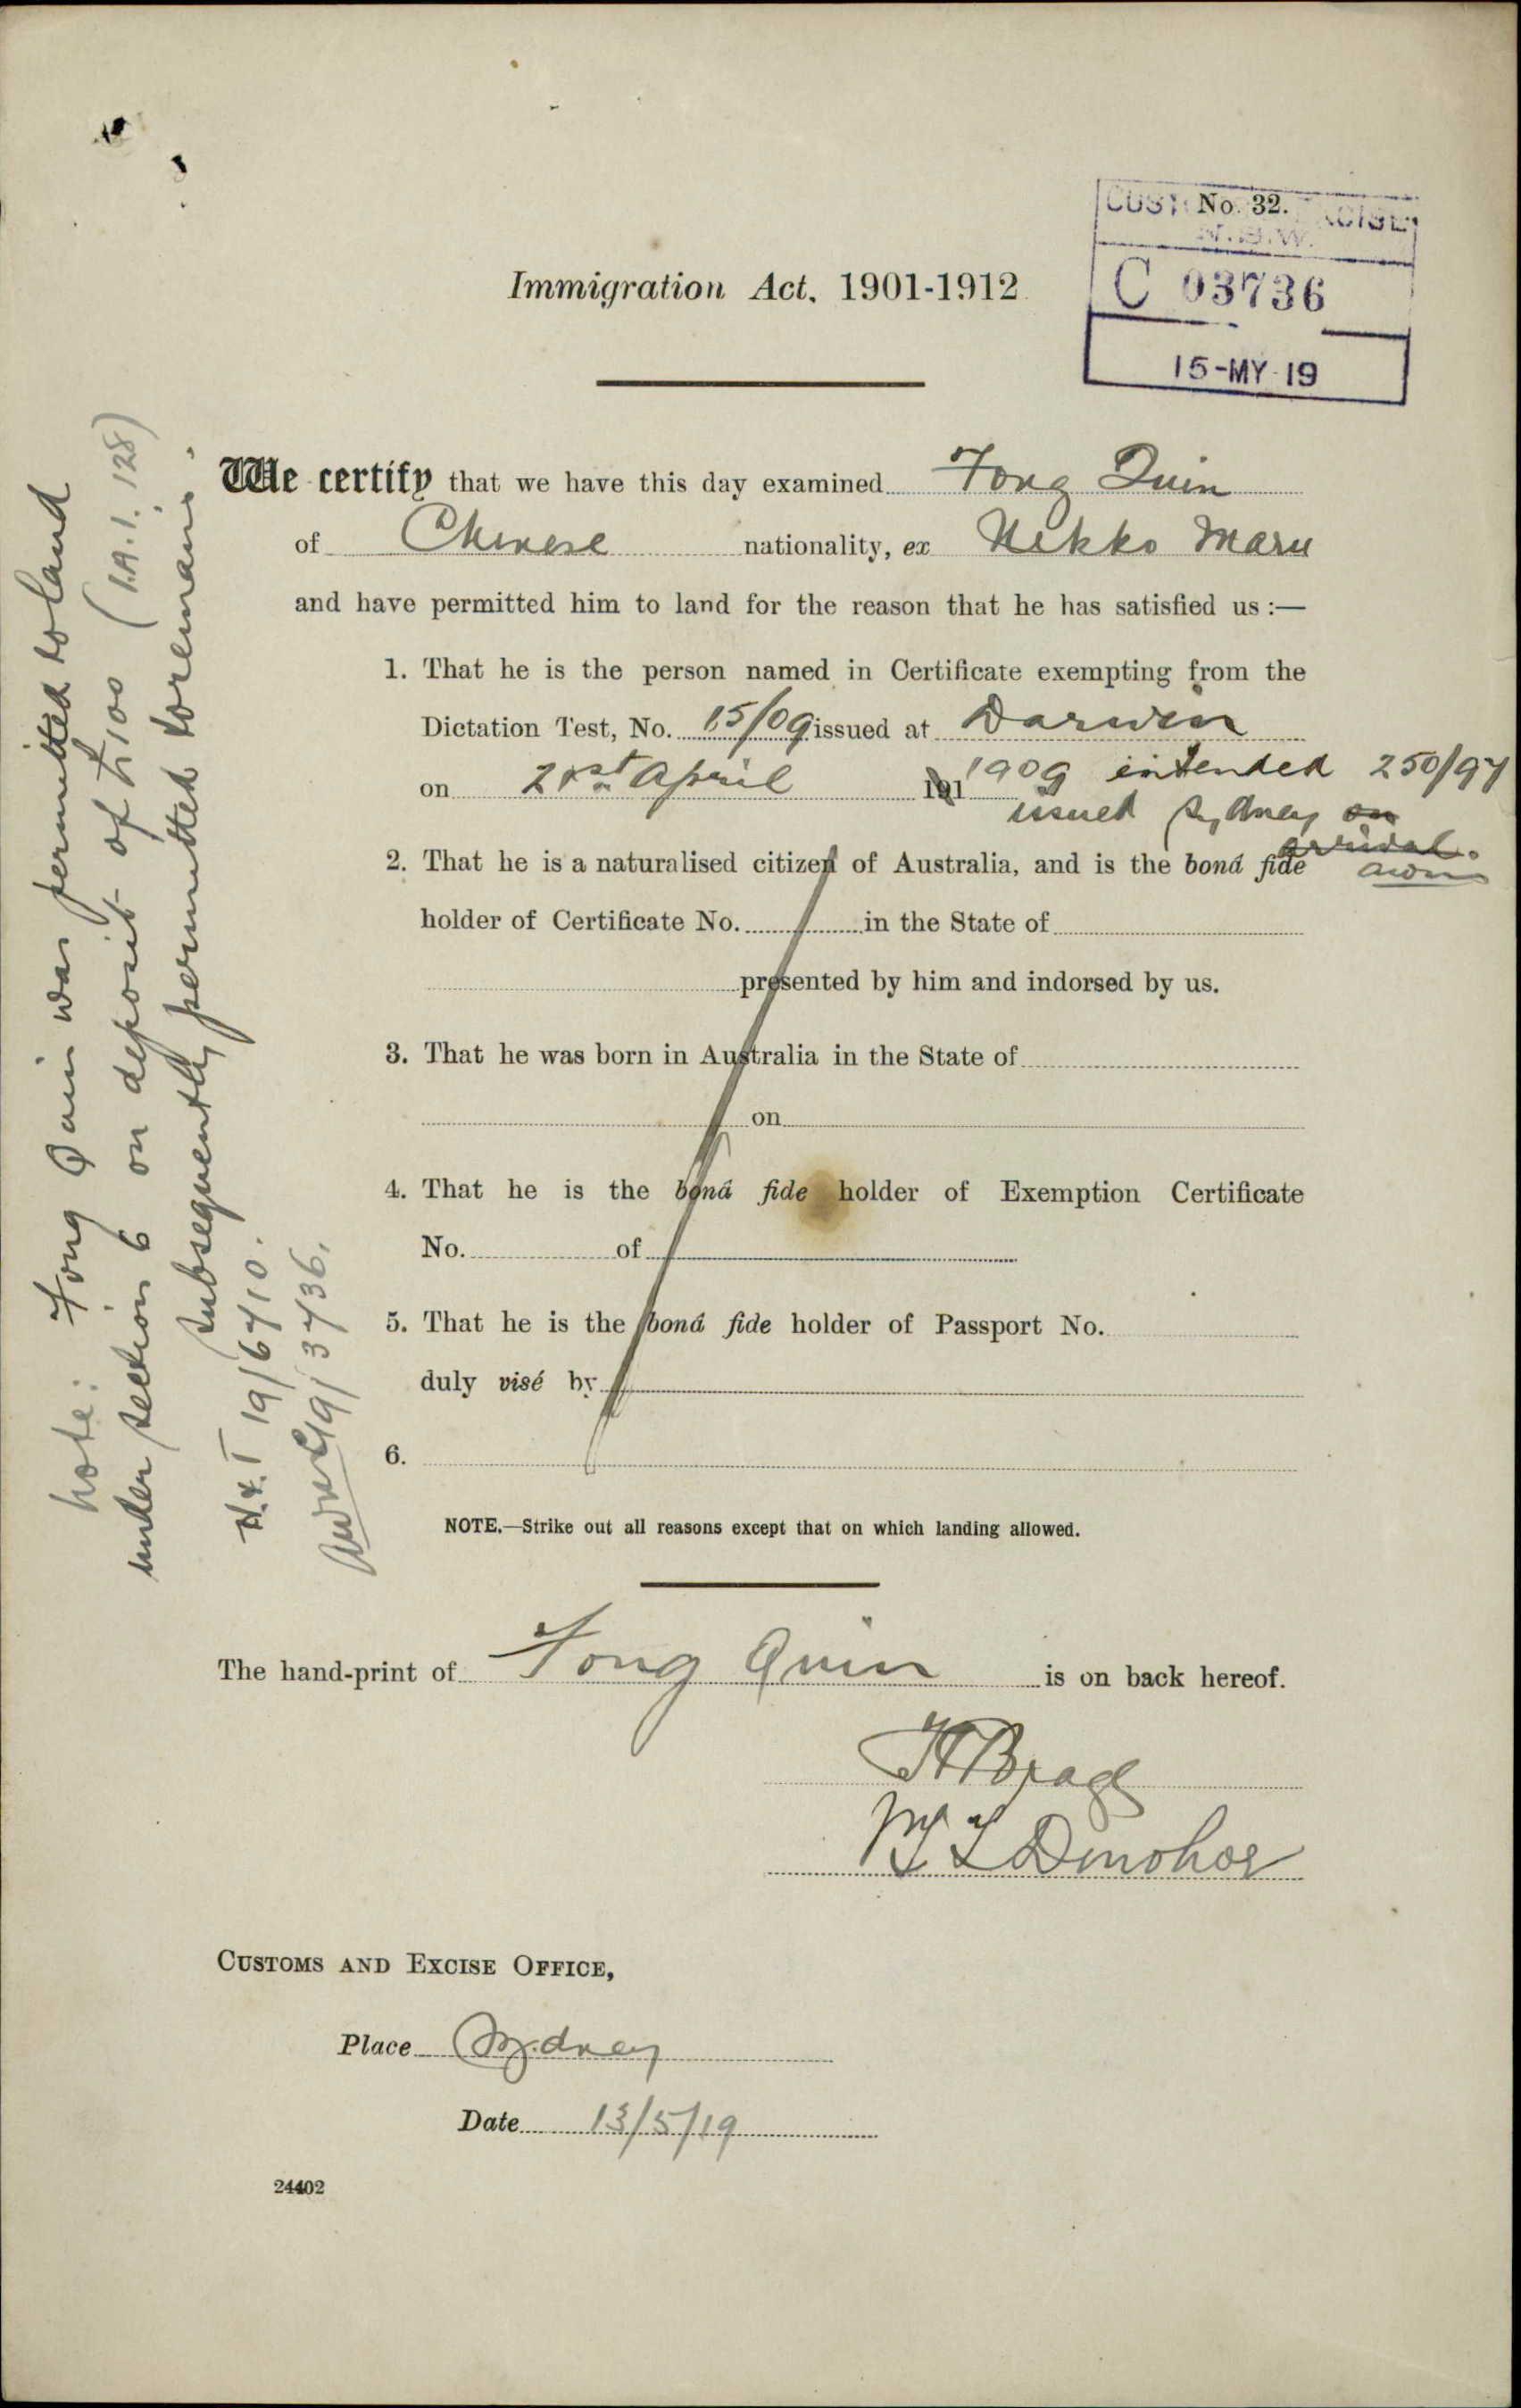 No. 32.
N.S.W.
C 03736
15-MY-19
Immigration Act, 1901-1912
We certify that we have this day examined Fong Quin
of Chinese nationality, ex Nikko Maru
and have permitted him to land for the reason that he has satisfied us :—
1. That he is the person named in Certificate exempting from the
Dictation Test, No. 15/09 issued at Darwin
on 21st April 191 1909 intended 250/97
issued Sydney on
arrival.
2. That he is a naturalised citizen of Australia, and is the boná fide
holder of Certificate No. in the State of
presented by him and indorsed by us.
3. That he was born in Australia in the State of
on
4. That he is the boná fide holder of Exemption Certificate
No. of
5. That he is the boná fide holder of Passport No.
duly visé by
6.
NOTE.—Strike out all reasons except that on which landing allowed.
The hand-print of Fong Quin is on back hereof.
Donohoe
CUSTOMS AND EXCISE OFFICE,
Place Sydney
Date 13/5/19
24402
Note: Fong Quin was permitted to land
under section 6 on deposit of £100 (I.A.1. 128)
Subsequently permitted to remain.
H.&T 19/6710.
19/3736.